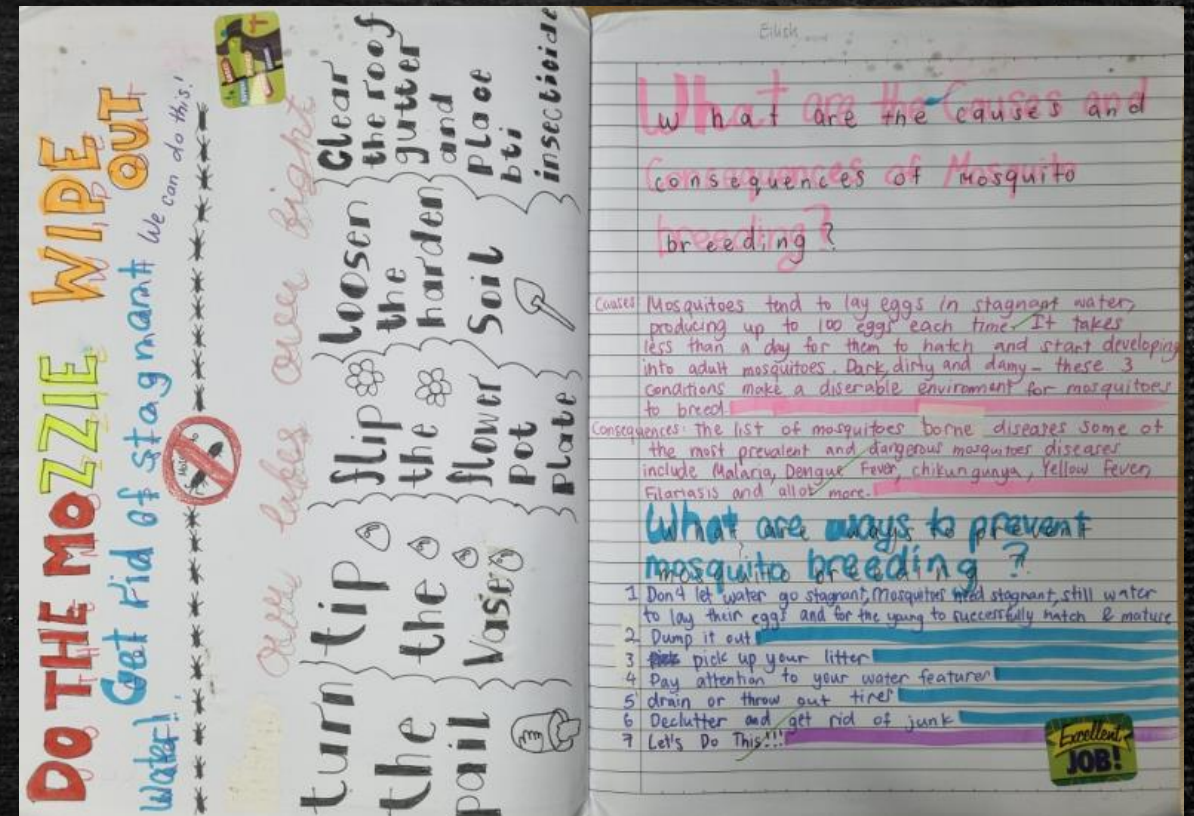 DO THE MOZZIE WIPE OUT
Get rid of stagnant We can do this!
Water!!
Our lives our right
turn
the
pail
tip
the
Vase
flip
the
flower
pot
plate
loosen
the
harden
Soil
Clear
the roof
gutter
and
place
bti
insecticide
Eilish
What are the Causes and
What are the causes and
Consequences of Mosquito
consequences of Mosquito
breeding?
breeding?
Causes Mosquitoes tend to lay eggs in stagnant water,
producing up to 100 eggs each time. It takes
less than a day for them to hatch and start developing
into adult mosquitoes. Dark, dirty and damy- these 3
conditions make a diserable enviroment for mosquitoes
to breed.
Consequences: The list of mosquitoes borne diseases some of
the most prevalent and dangerous mosquitoes diseases
include Malaria, Dengue Fever, chikungunya, Yellow Fever,
Filariasis and allot more.
What are ways to prevent
mosquito breeding ?
1 Don't let water go stagnant, Mosquitoes need stagnant, still water
to lay their eggs and for the young to successfully hatch & mature
2 Dump it out
3 pick up your litter
4 Pay attention to your water features
5 drain or throw out tires
6 Declutter and get rid of junk
7 Let's Do This!!!
Excellent
JOB!